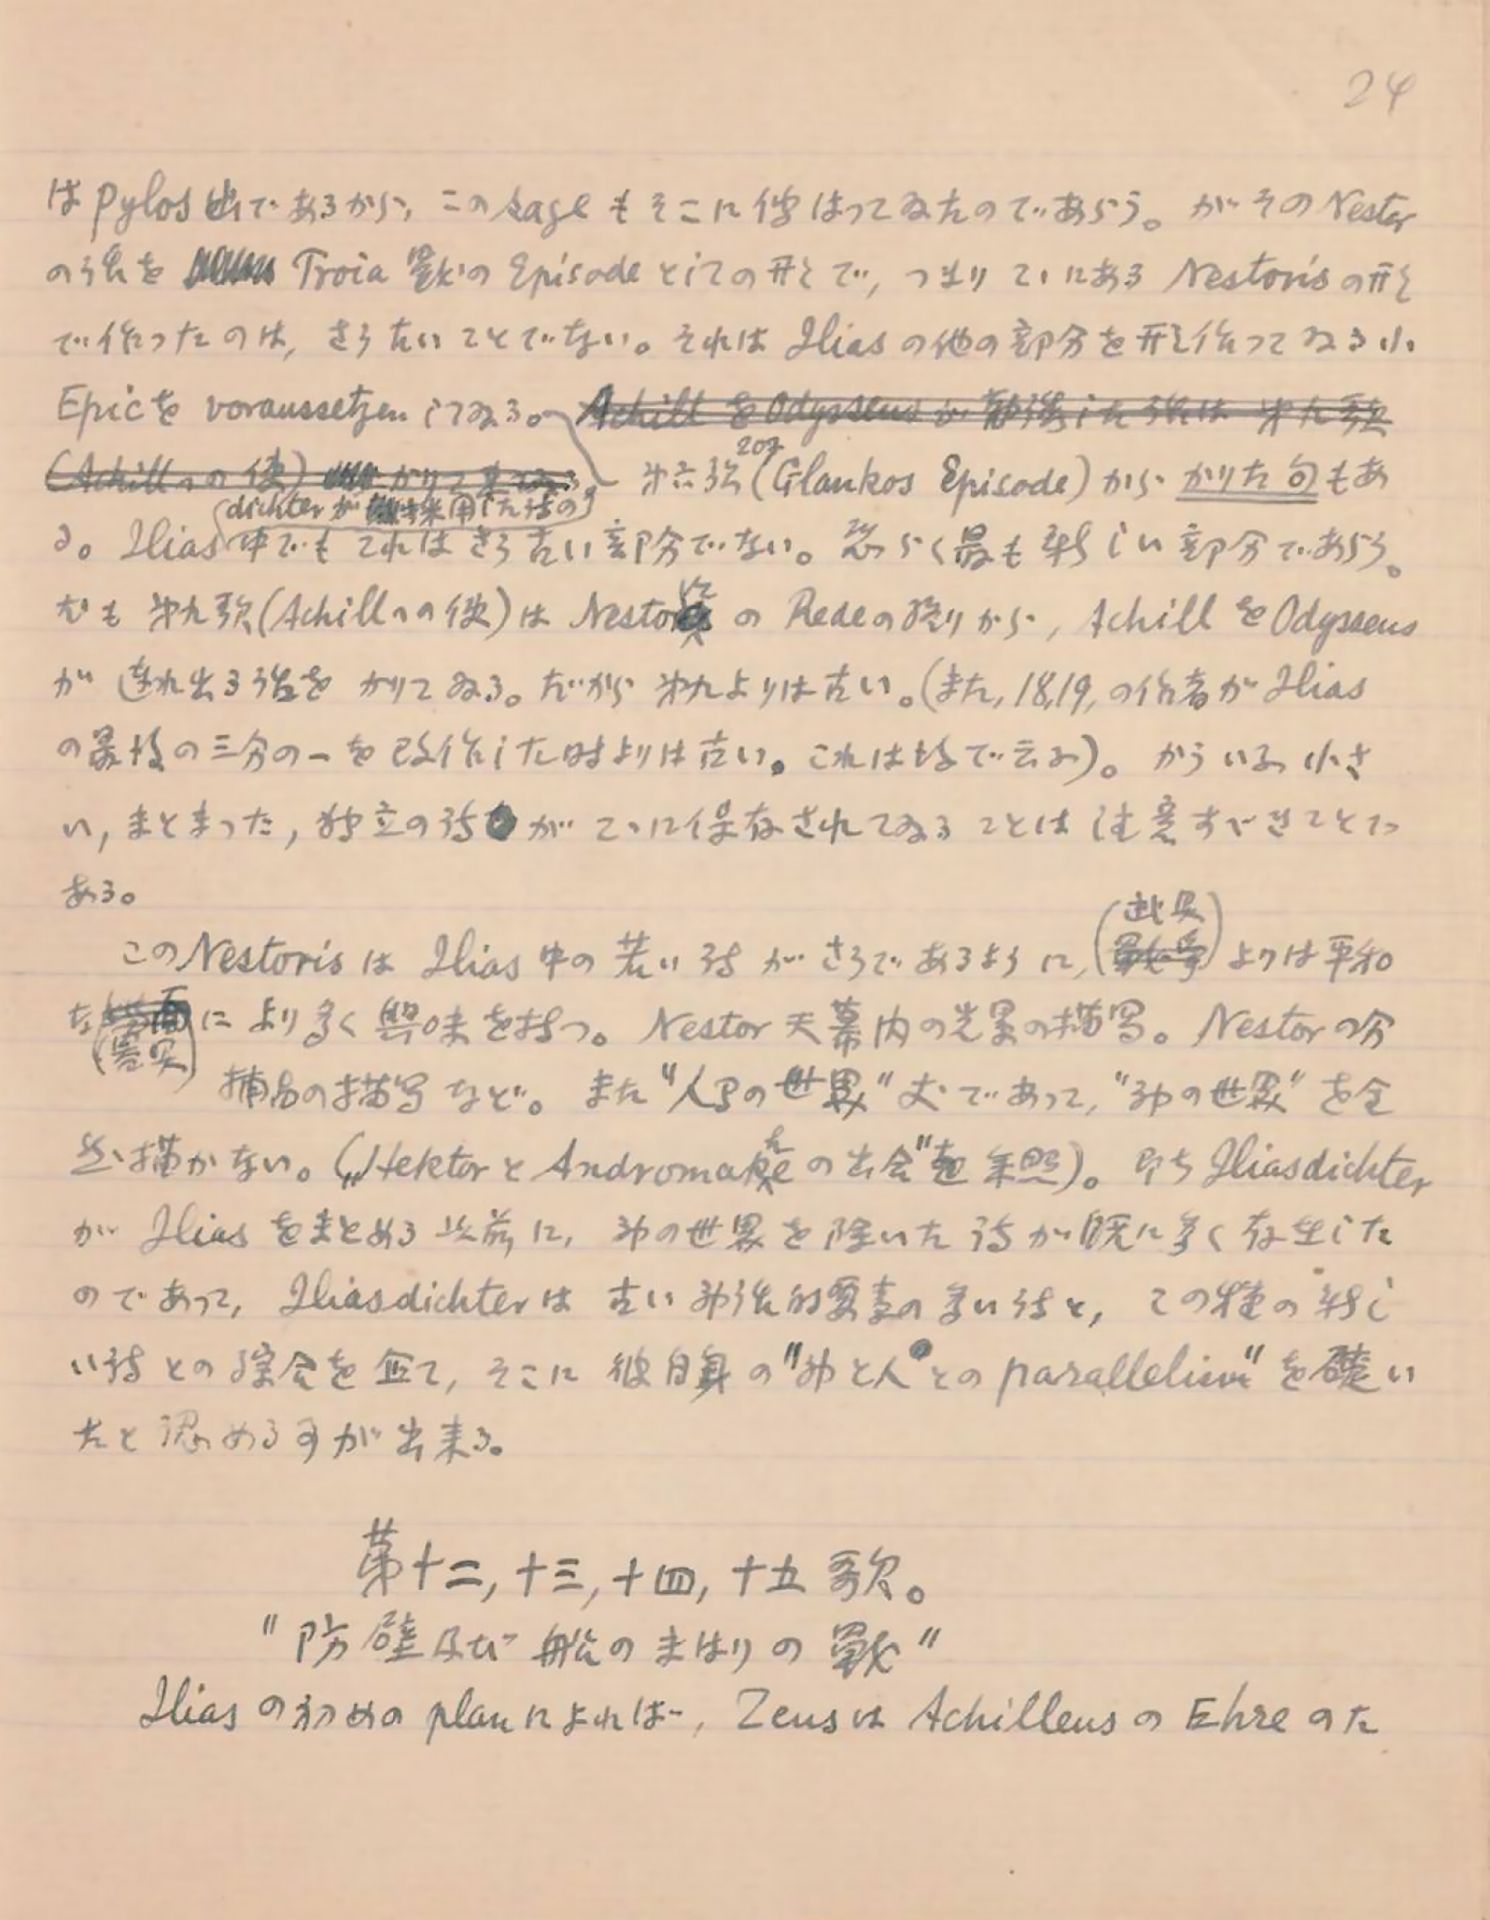 24
はPylos出であるから、このsageもそこに傳はってゐたのであらう。がそのNestor
の話を Troia戰のEpisodeとしての形で、つまりこゝにあるNestorisの形
で作ったのは、さう古いことでない。それはIliasの他の部分を形作ってゐる小
Epicをvoraussetzenしてゐる。 AchillをOdysseusが勧誘した話は第九歌
(Achillへの使) かりて 第六歌(Glaukos Episode)から かりた句もあ
207
dichterが採用した詩の
る。Ilias中でもこれはさう古い部分でない。恐らく最も新しい部分であらう。
尤も第九歌(Achillへの使)はNestorのRedeの終りから、AchillをOdysseus
が連れ出る話をかりてゐる。だから第九よりは古い。(また、18,19,の作者がIlias
の最後の三分の一を改作した時よりは古い。これは後で云ふ)。かういふ小さ
い、まとまった、独立の詩がこゝに保存されてゐることは注意すべきことで
ある。
このNestorisはIlias中の若い詩がさうであるように、(武具 戰争)よりは平和
な場面により多く興味を持つ。Nestor天幕内の光景の描写。Nestorの分
捕品の描写など。また"人間の世界"丈であって、"神の世界"を全
然描かない。(„HektorとAndromacheの出会"参照)。即ちIliasdichter
がIliasをまとめる以前に、神の世界を除いた詩が既に多く存在した
のであって、Iliasdichterは古い神話的要素の多い詩と、この種の新し
い詩との綜合を企て、そこに彼自身の"神と人とのparallelism"を礎い
たと認める事が出来る。
第十二,十三,十四,十五歌。
"防壁及び船のまはりの戰"
Iliasの初めのplanによれば、ZeusはAchilleusのEhreのた